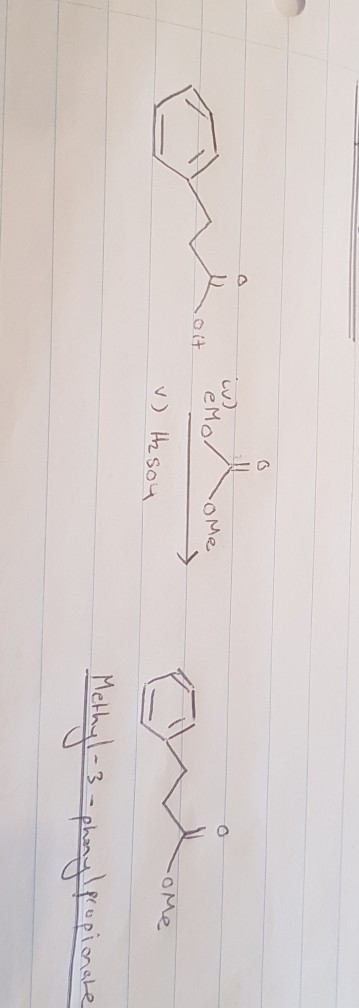 O
OH
iv)
O
eMO
OMe
v) H2SO4
O
OMe
Methyl-3-phenylpropionate